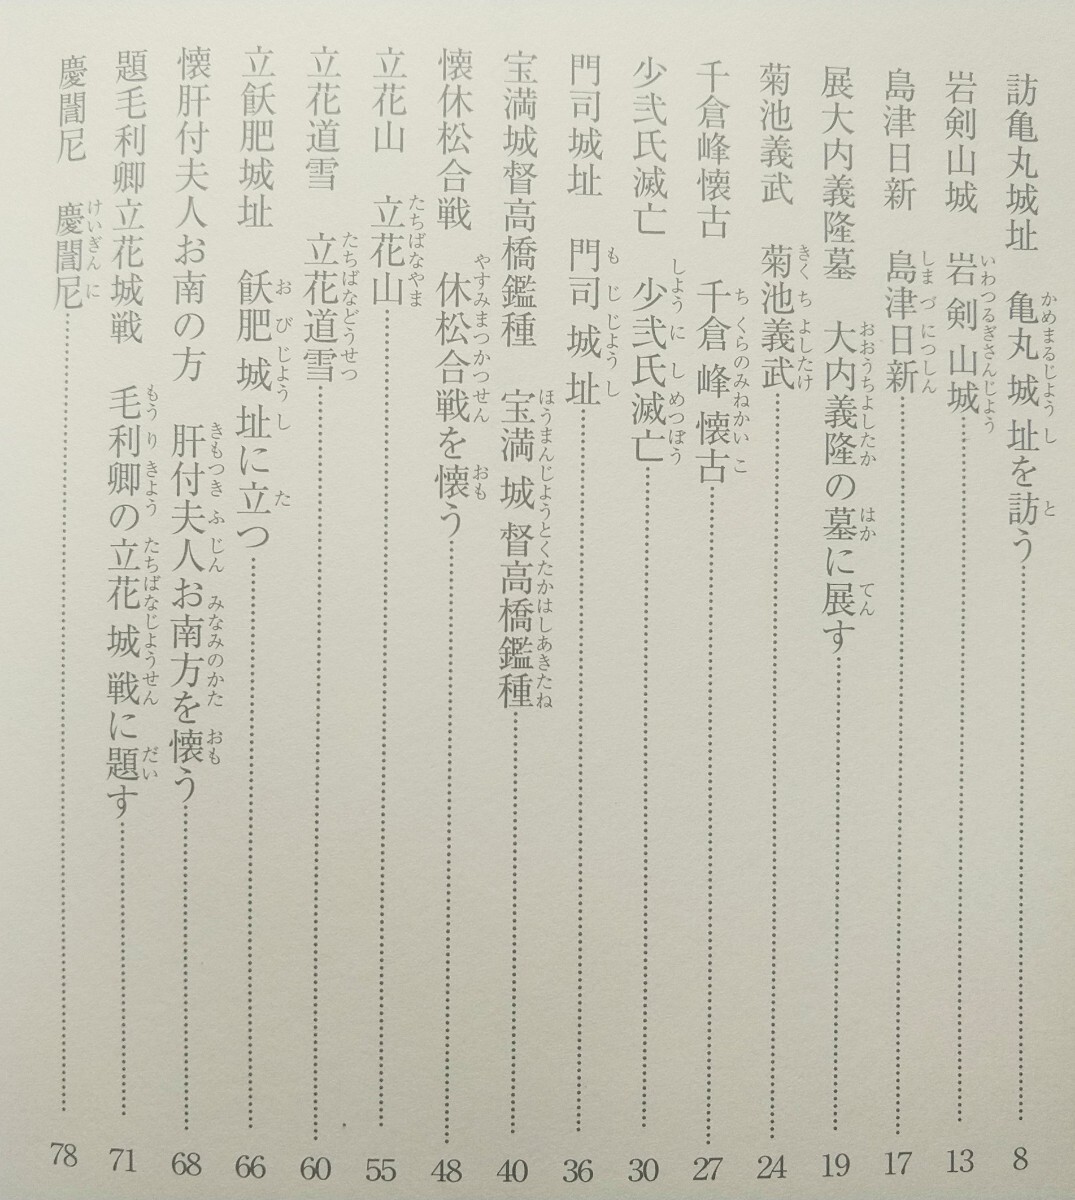 訪亀丸城址　亀丸城址を訪う 8
岩剣山城　岩剣山城 13
島津日新　島津日新 17
展大内義隆墓　大内義隆の墓に展す 19
菊池義武　菊池義武 24
千倉峰懐古　千倉峰懐古 27
少弐氏滅亡　少弐氏滅亡 30
門司城址　門司城址 36
宝満城督高橋鑑種　宝満城督高橋鑑種 40
懐休松合戦　休松合戦を懐う 48
立花山　立花山 55
立花道雪　立花道雪 60
立飫肥城址　飫肥城址に立つ 66
懐肝付夫人お南の方　肝付夫人お南方を懐う 68
題毛利卿立花城戦　毛利卿の立花城戦に題す 71
慶誾尼　慶誾尼 78